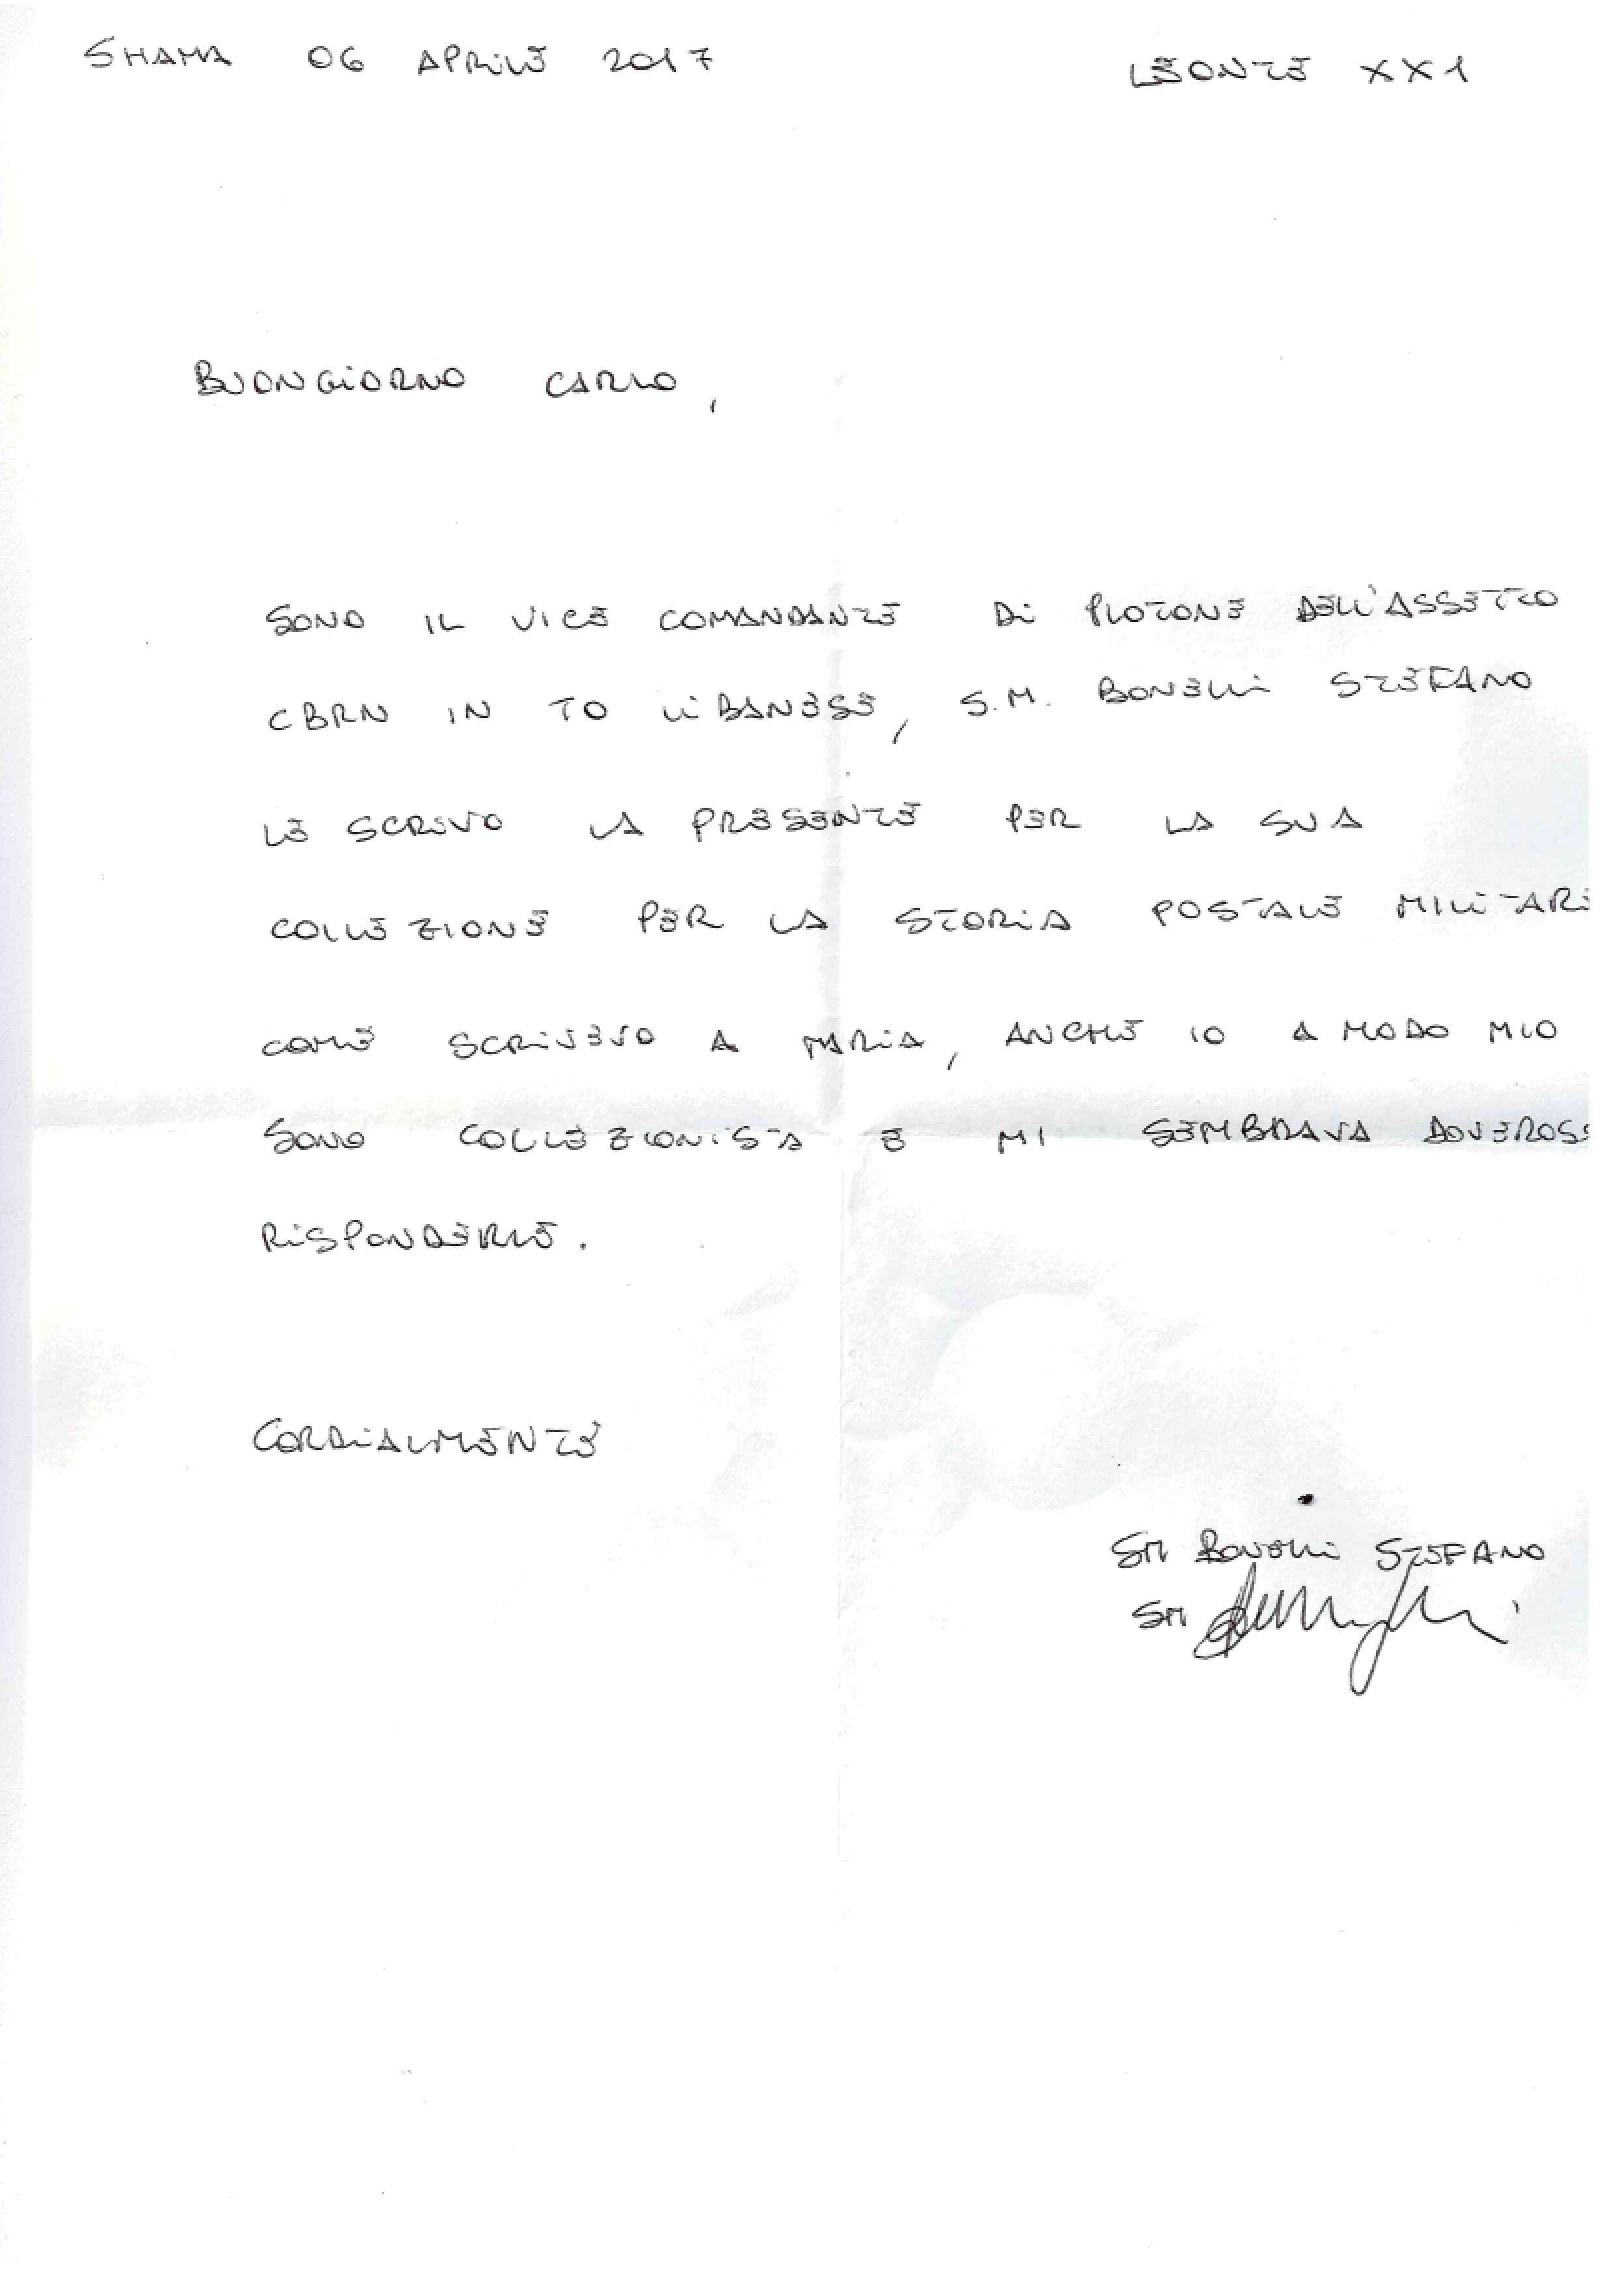 SHAMA 06 APRILE 2017 LEONTE XX1
BUONGIORNO CARLO,
SONO IL VICE COMANDANTE Di PLOTONE DELL'ASSETTO
CBRN IN TO LiBANESE, S.M. BONELLi STEFANO
LE SCRIVO LA PRESENTE PER LA SUA
COLLEZIONE PER LA STORiA POSTALE MILiTARE
COME SCRIVEVO A MARiA, ANCHE IO A MODO MIO
SONO COLLEZIONiSTA E MI SEMBRAVA DOVEROSO
RiSPONDERLE.
CORDiALMENTE
SM BONELLi STEFANO
SM